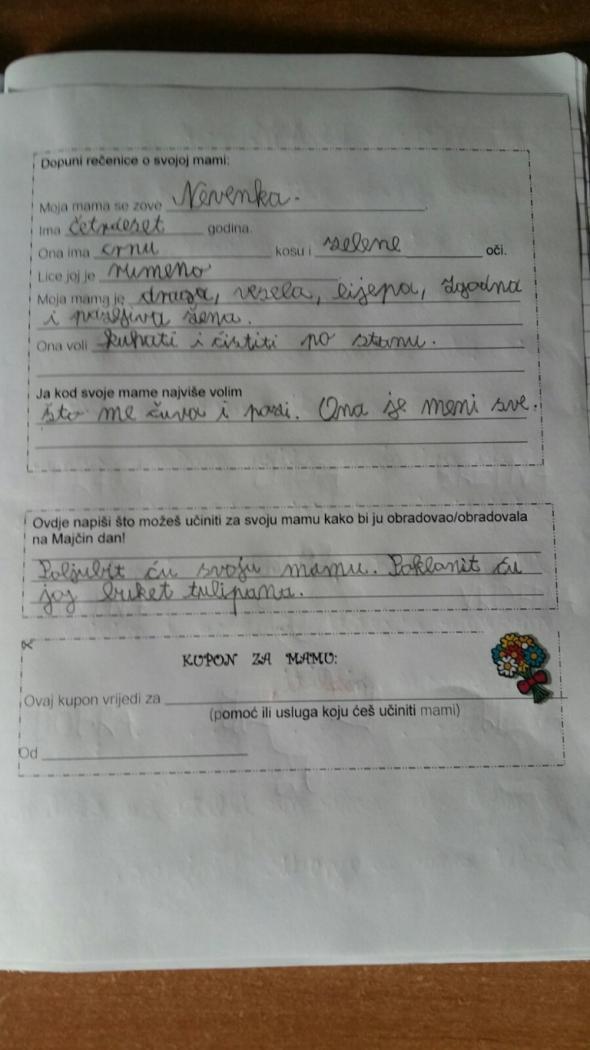 Dopuni rečenice o svojoj mami:
Moja mama se zove Nevenka.
Ima četrdeset godina.
Ona ima crnu kosu i zelene oči.
Lice joj je rumeno
Moja mama je draga, vesela, lijepa, zgodna
i pažljiva žena.
Ona voli kuhati i čistiti po stanu.
Ja kod svoje mame najviše volim
što me čuva i pazi. Ona je meni sve.
Ovdje napiši što možeš učiniti za svoju mamu kako bi ju obradovao/obradovala
na Majčin dan!
Poljubit ću svoju mamu. Poklonit ću
joj buket tulipana.
KUPON ZA MAMU:
Ovaj kupon vrijedi za
(pomoć ili usluga koju ćeš učiniti mami)
Od